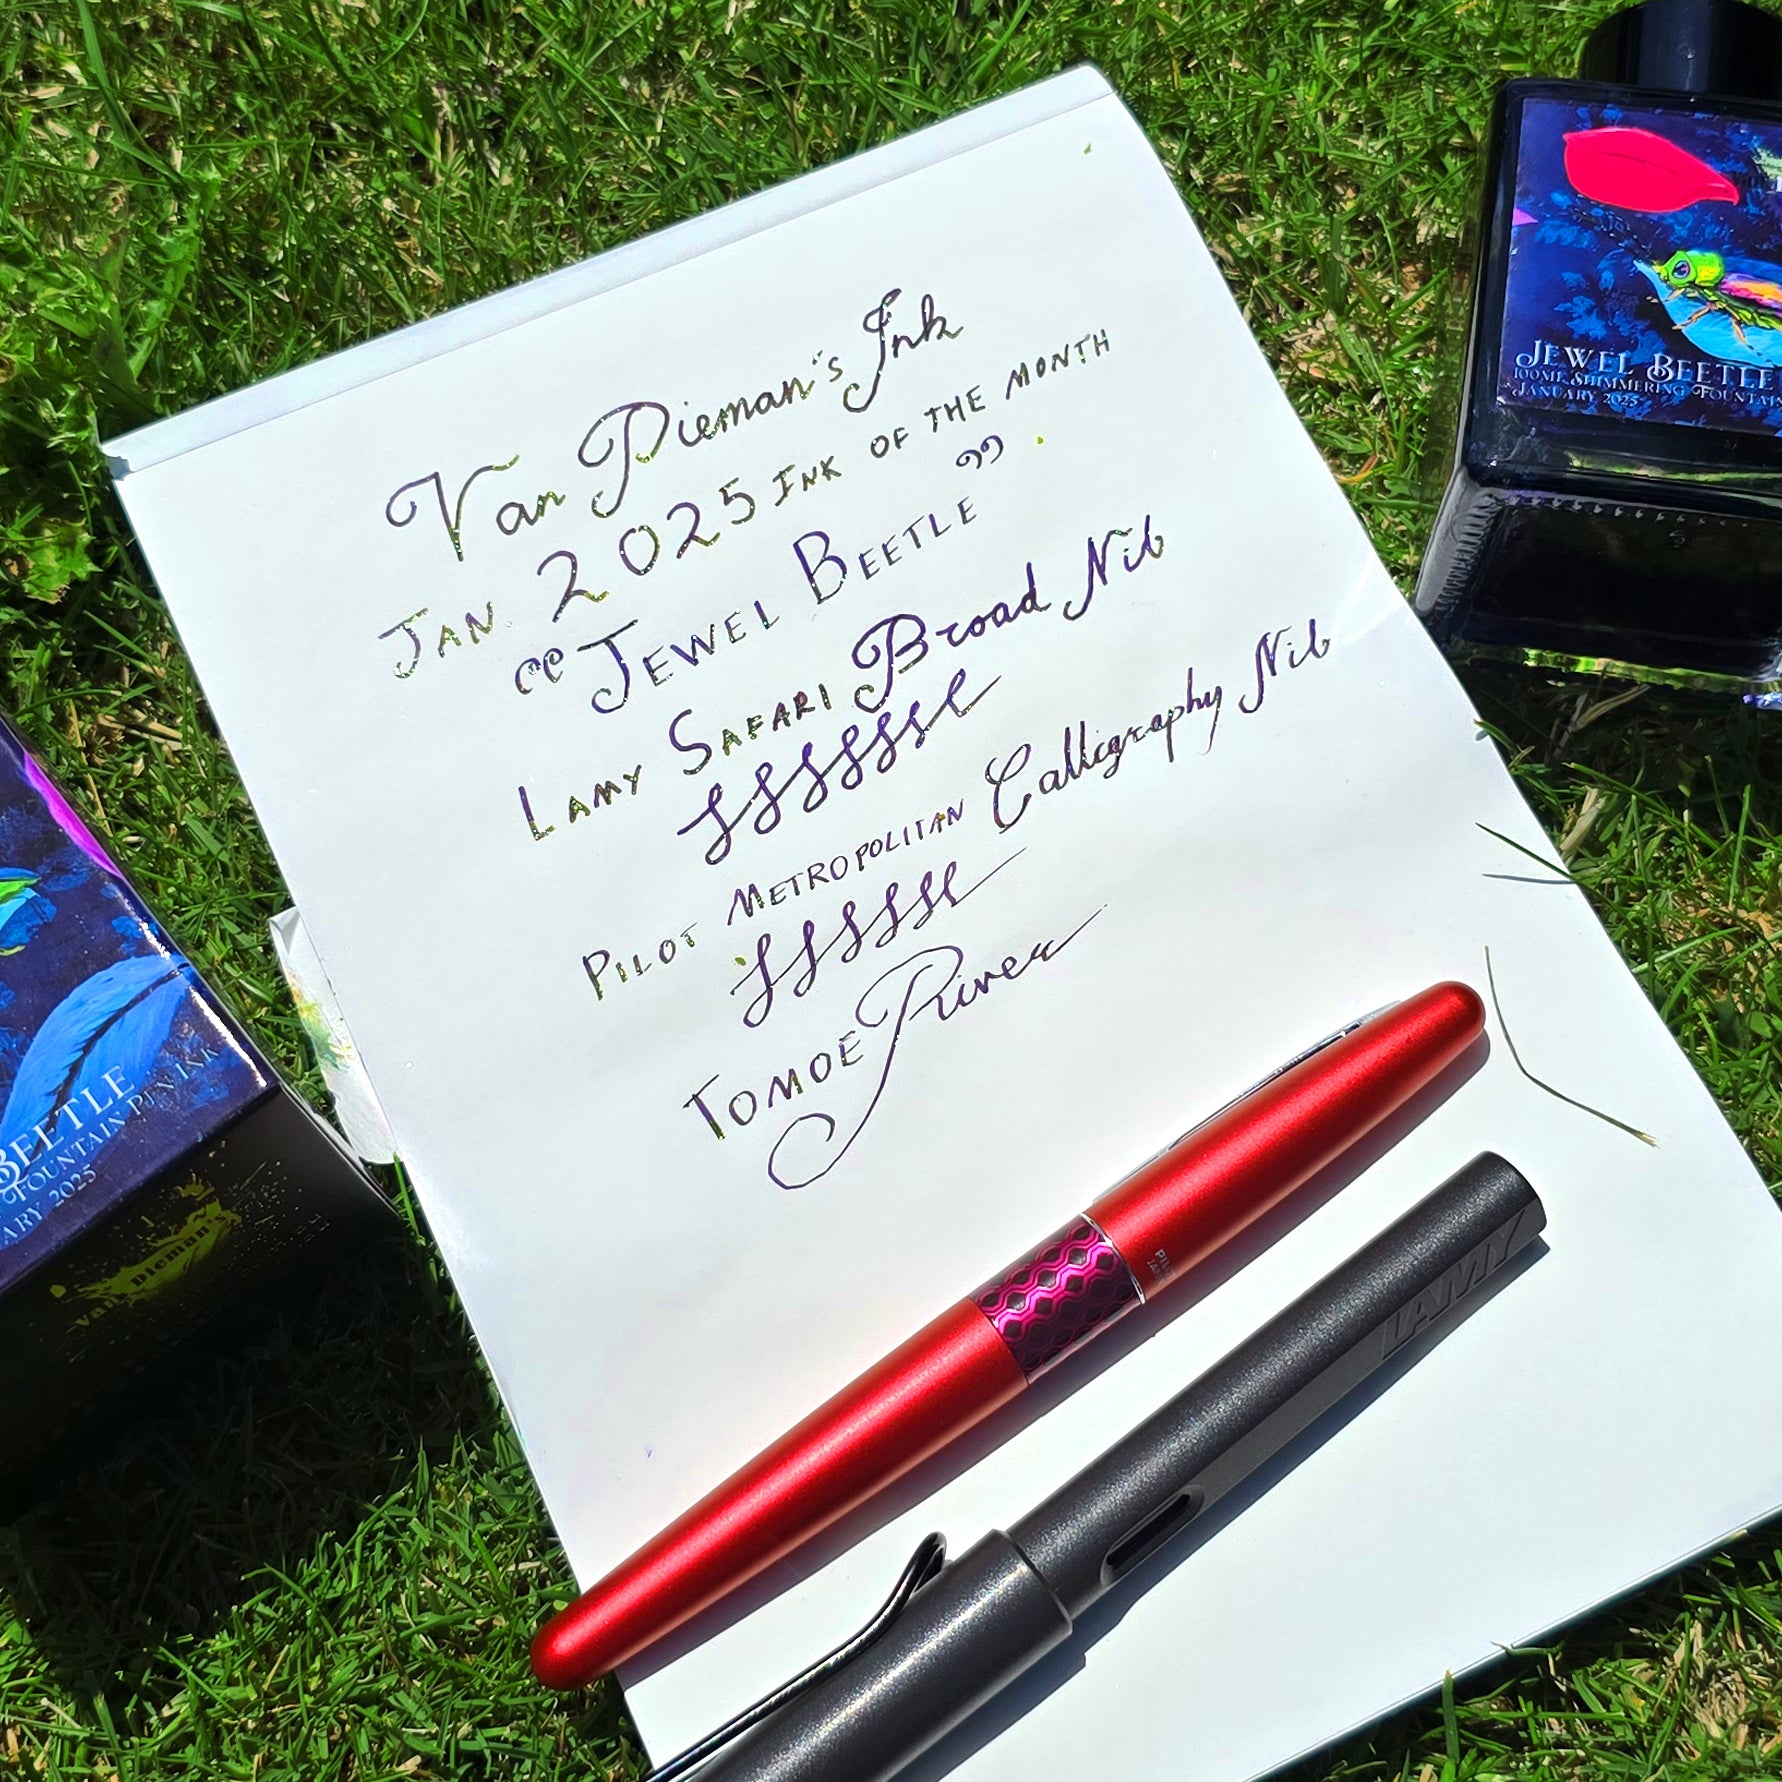 Van Dieman's Ink
JAN. 2025 INK OF THE MONTH
"JEWEL BEETLE"
LAMY SAFARI Broad Nib
PILOT METROPOLITAN Calligraphy Nib
TOMOE River
JEWEL BEETLE
100ML SHIMMERING FOUNTAIN
JANUARY 2025
BEETLE
FOUNTAIN PEN INK
2025
van Dieman's
PILOT
LAMY